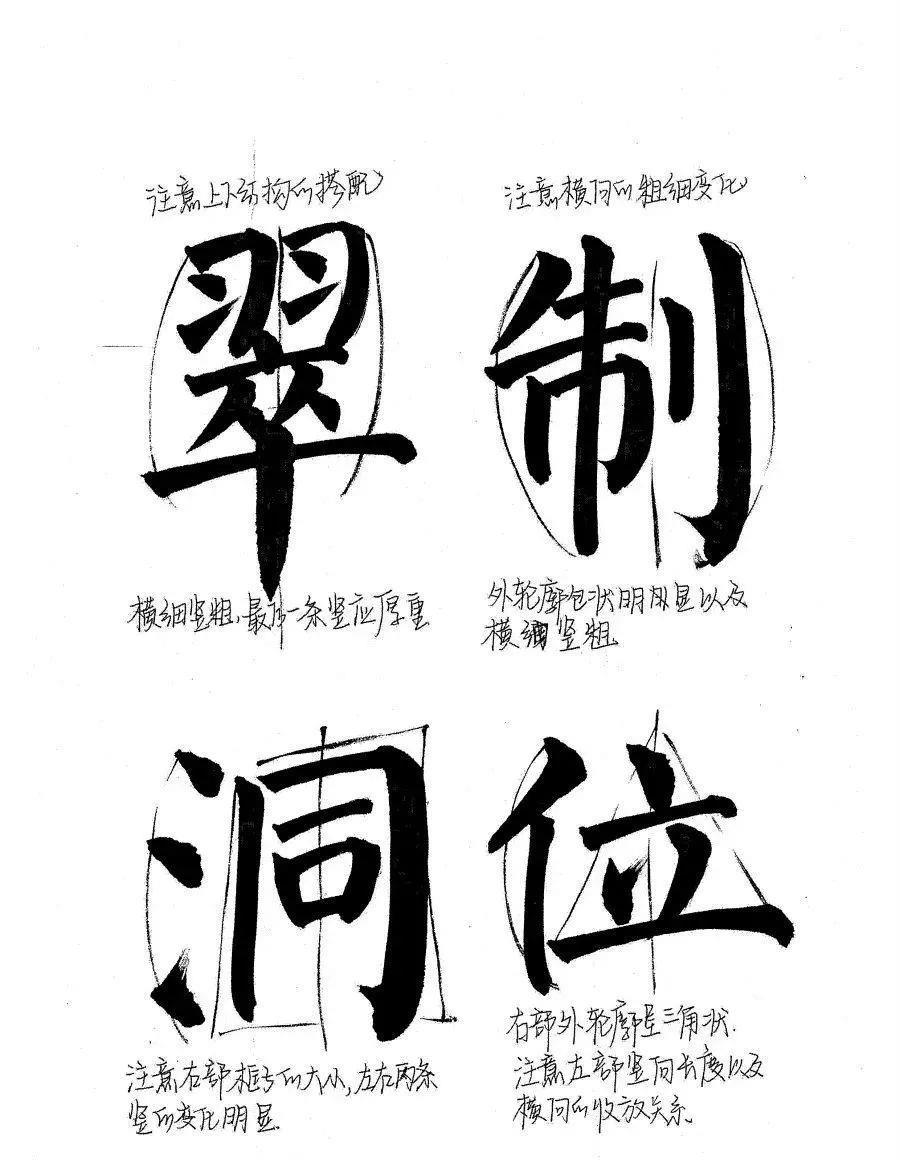 注意上下结构的搭配
翠
横细竖粗,最后一条竖应厚重
注意横向的粗细变化
制
外轮廓包状明显以及
横细竖粗.
洞
注意右部框与的大小,左右两条
竖的变化明显.
位
右部外轮廓呈三角状.
注意左部竖向长度以及
横向的收放关系.